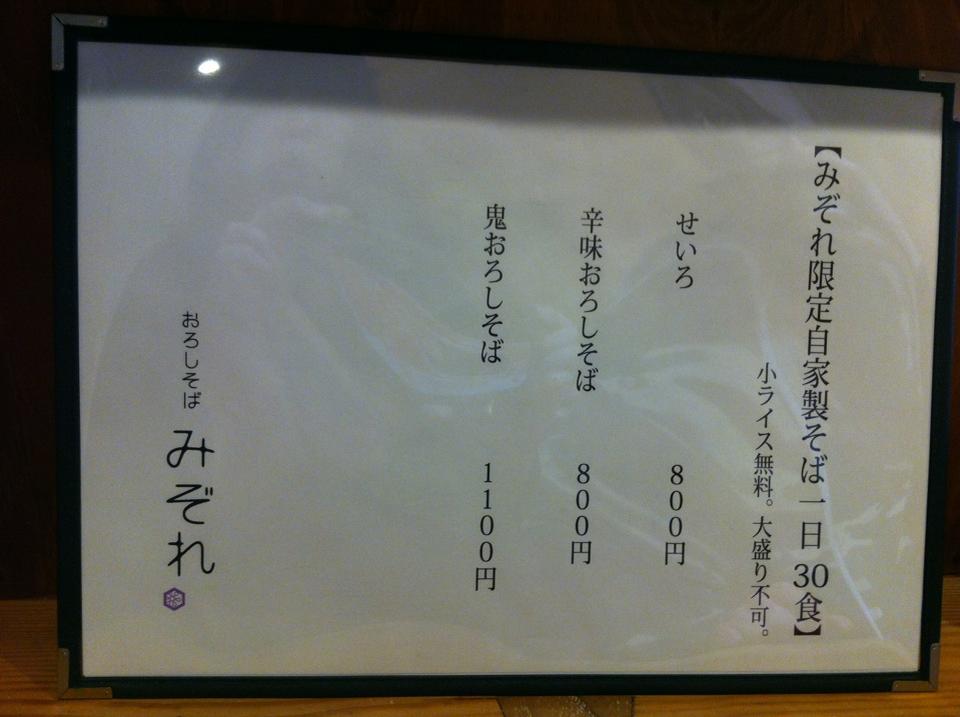 【みぞれ限定自家製そば一日30食】
小ライス無料。大盛り不可。
せいろ 800円
辛味おろしそば 800円
鬼おろしそば 1100円
おろしそば みぞれ